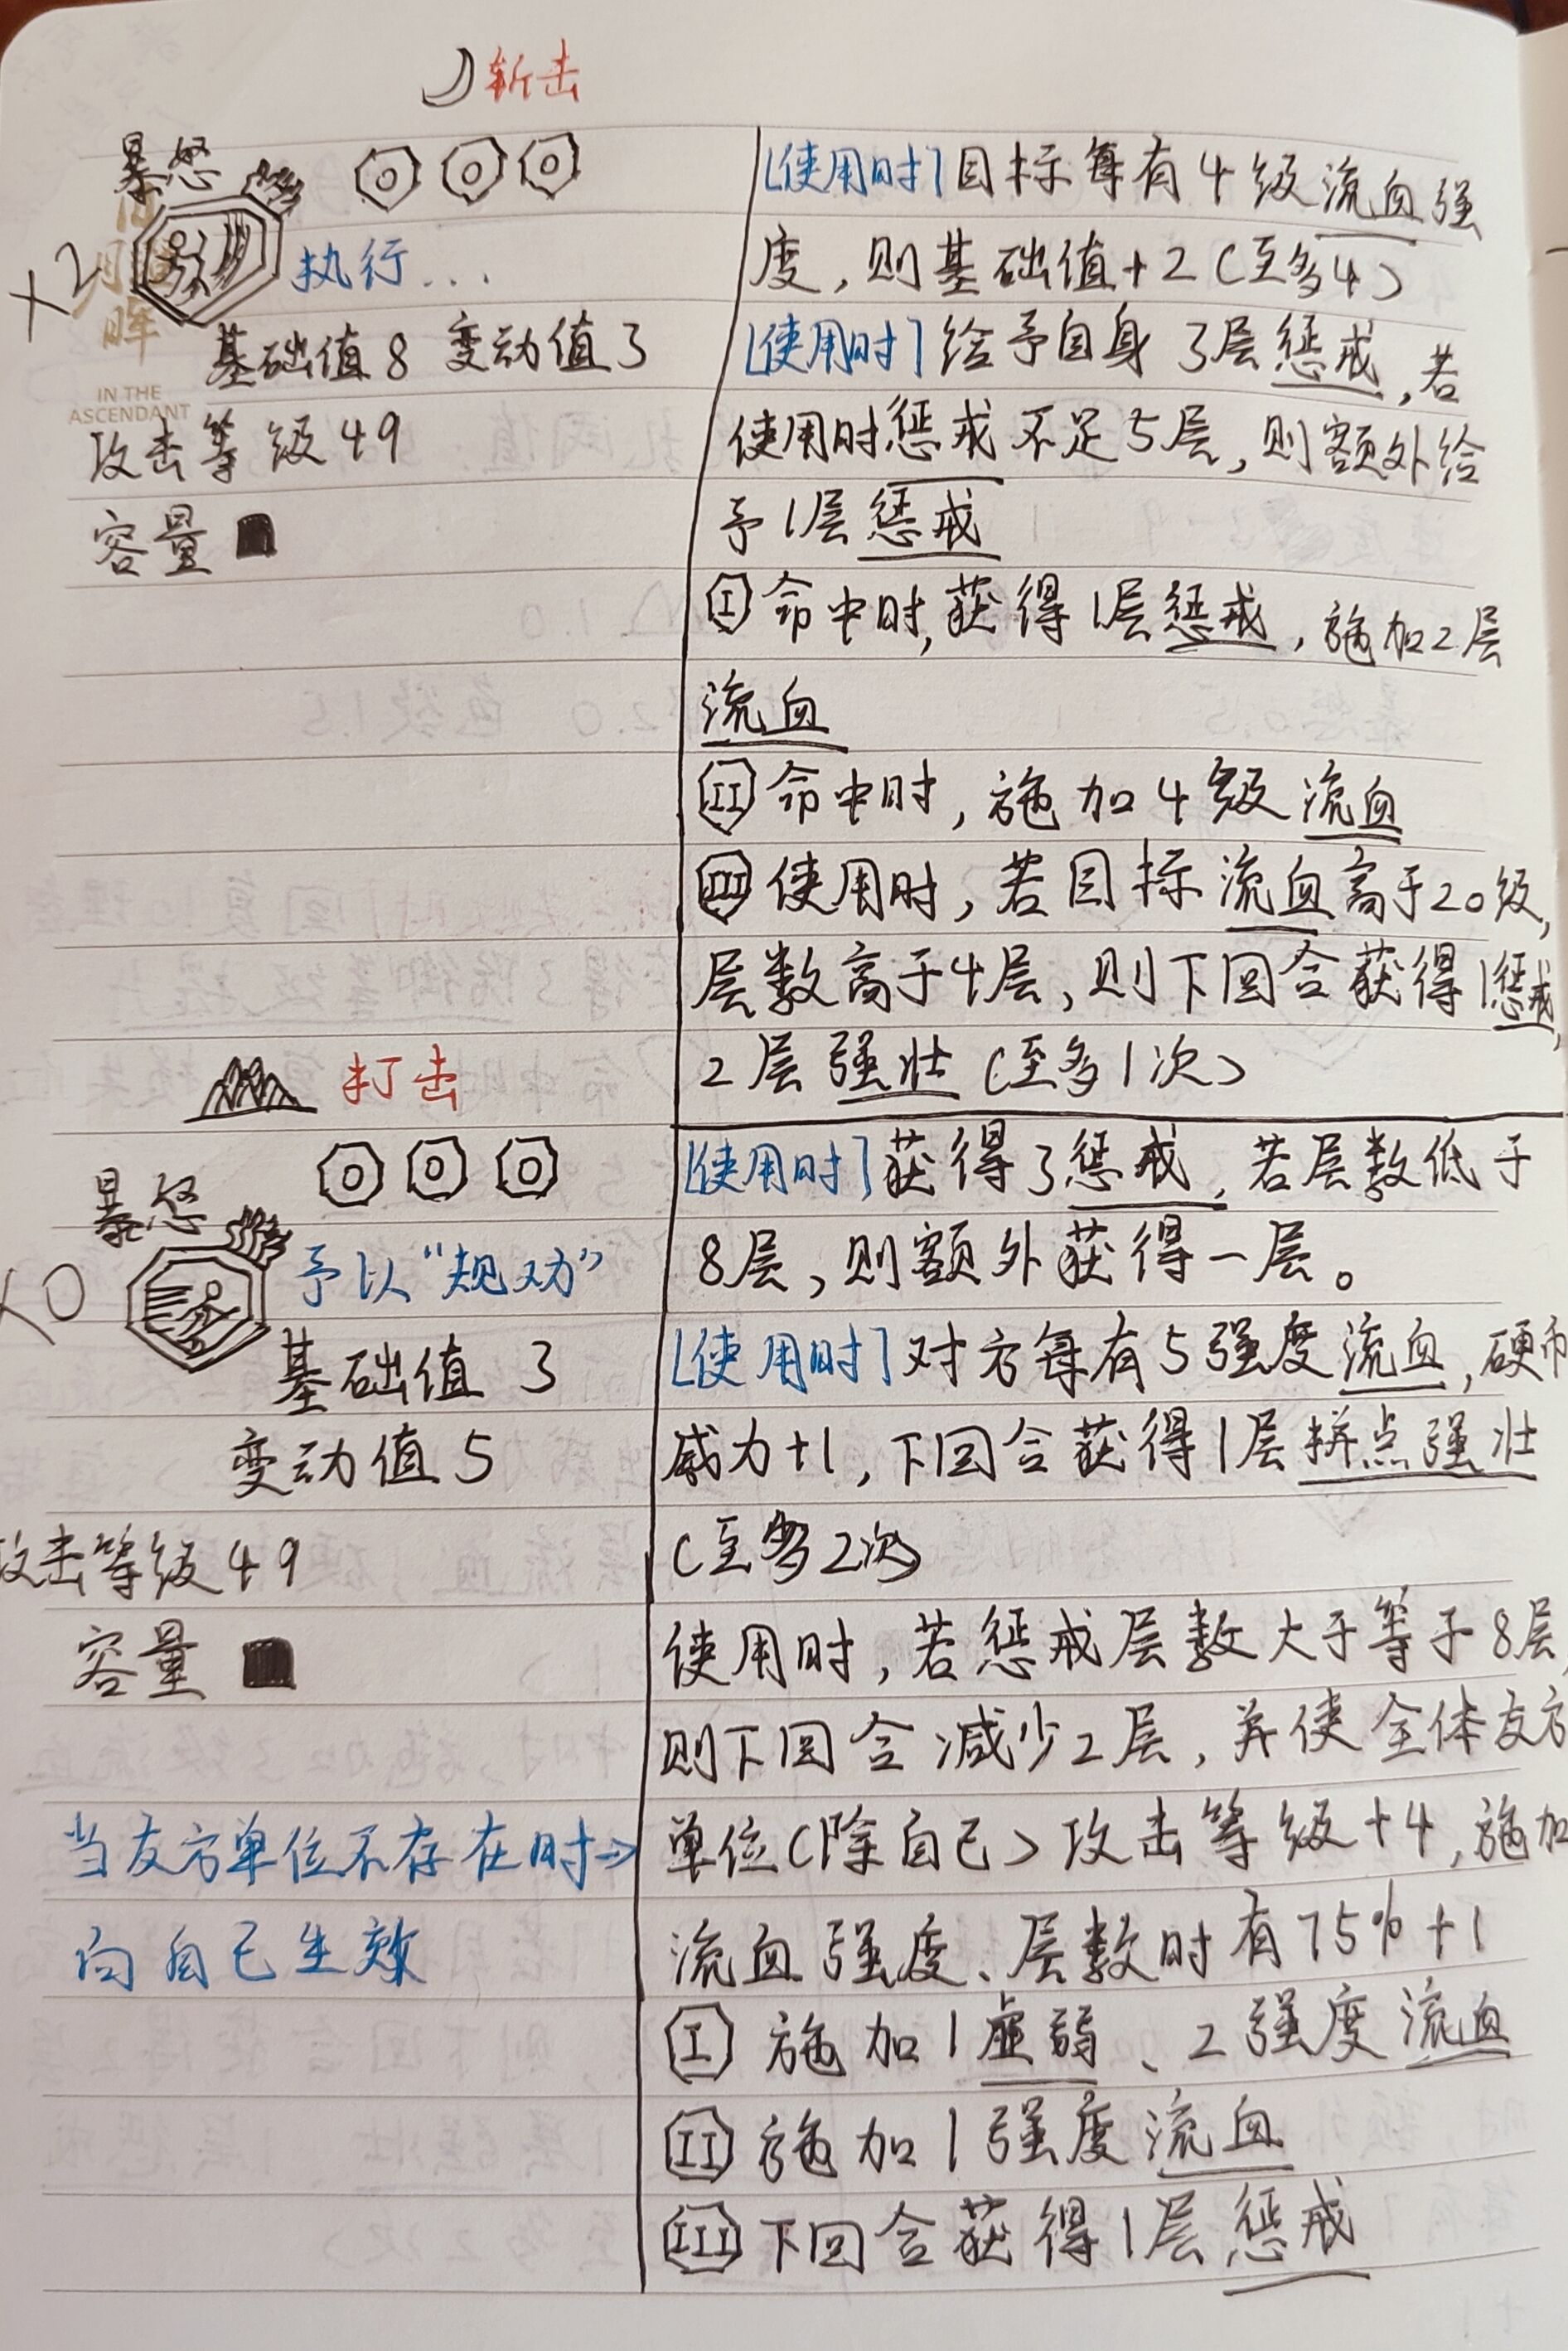 斩击
暴怒
×2
执行...
基础值8 变动值3
IN THE
ASCENDANT
攻击等级49
容量
[使用时]目标每有4级流血强
度,则基础值+2(至多4)
[使用时]给予自身3层惩戒,若
使用时惩戒不足5层,则额外给
予1层惩戒
I 命中时,获得1层惩戒,施加2层
流血
II 命中时,施加4级流血
III 使用时,若目标流血高于20级,
层数高于4层,则下回合获得1惩戒,
2层强壮(至多1次)
打击
暴怒
×0
予以“规劝”
基础值 3
变动值5
攻击等级49
容量
当友方单位不存在时→
向自己生效
[使用时]获得3惩戒,若层数低于
8层,则额外获得一层。
[使用时]对方每有5强度流血,硬币
威力+1,下回合获得1层拼点强壮
(至多2次)
使用时,若惩戒层数大于等于8层,
则下回合减少2层,并使全体友方
单位(除自己)攻击等级+4,施加
流血强度、层数时有75%+1
I 施加1虚弱、2强度流血
II 施加1强度流血
III 下回合获得1层惩戒